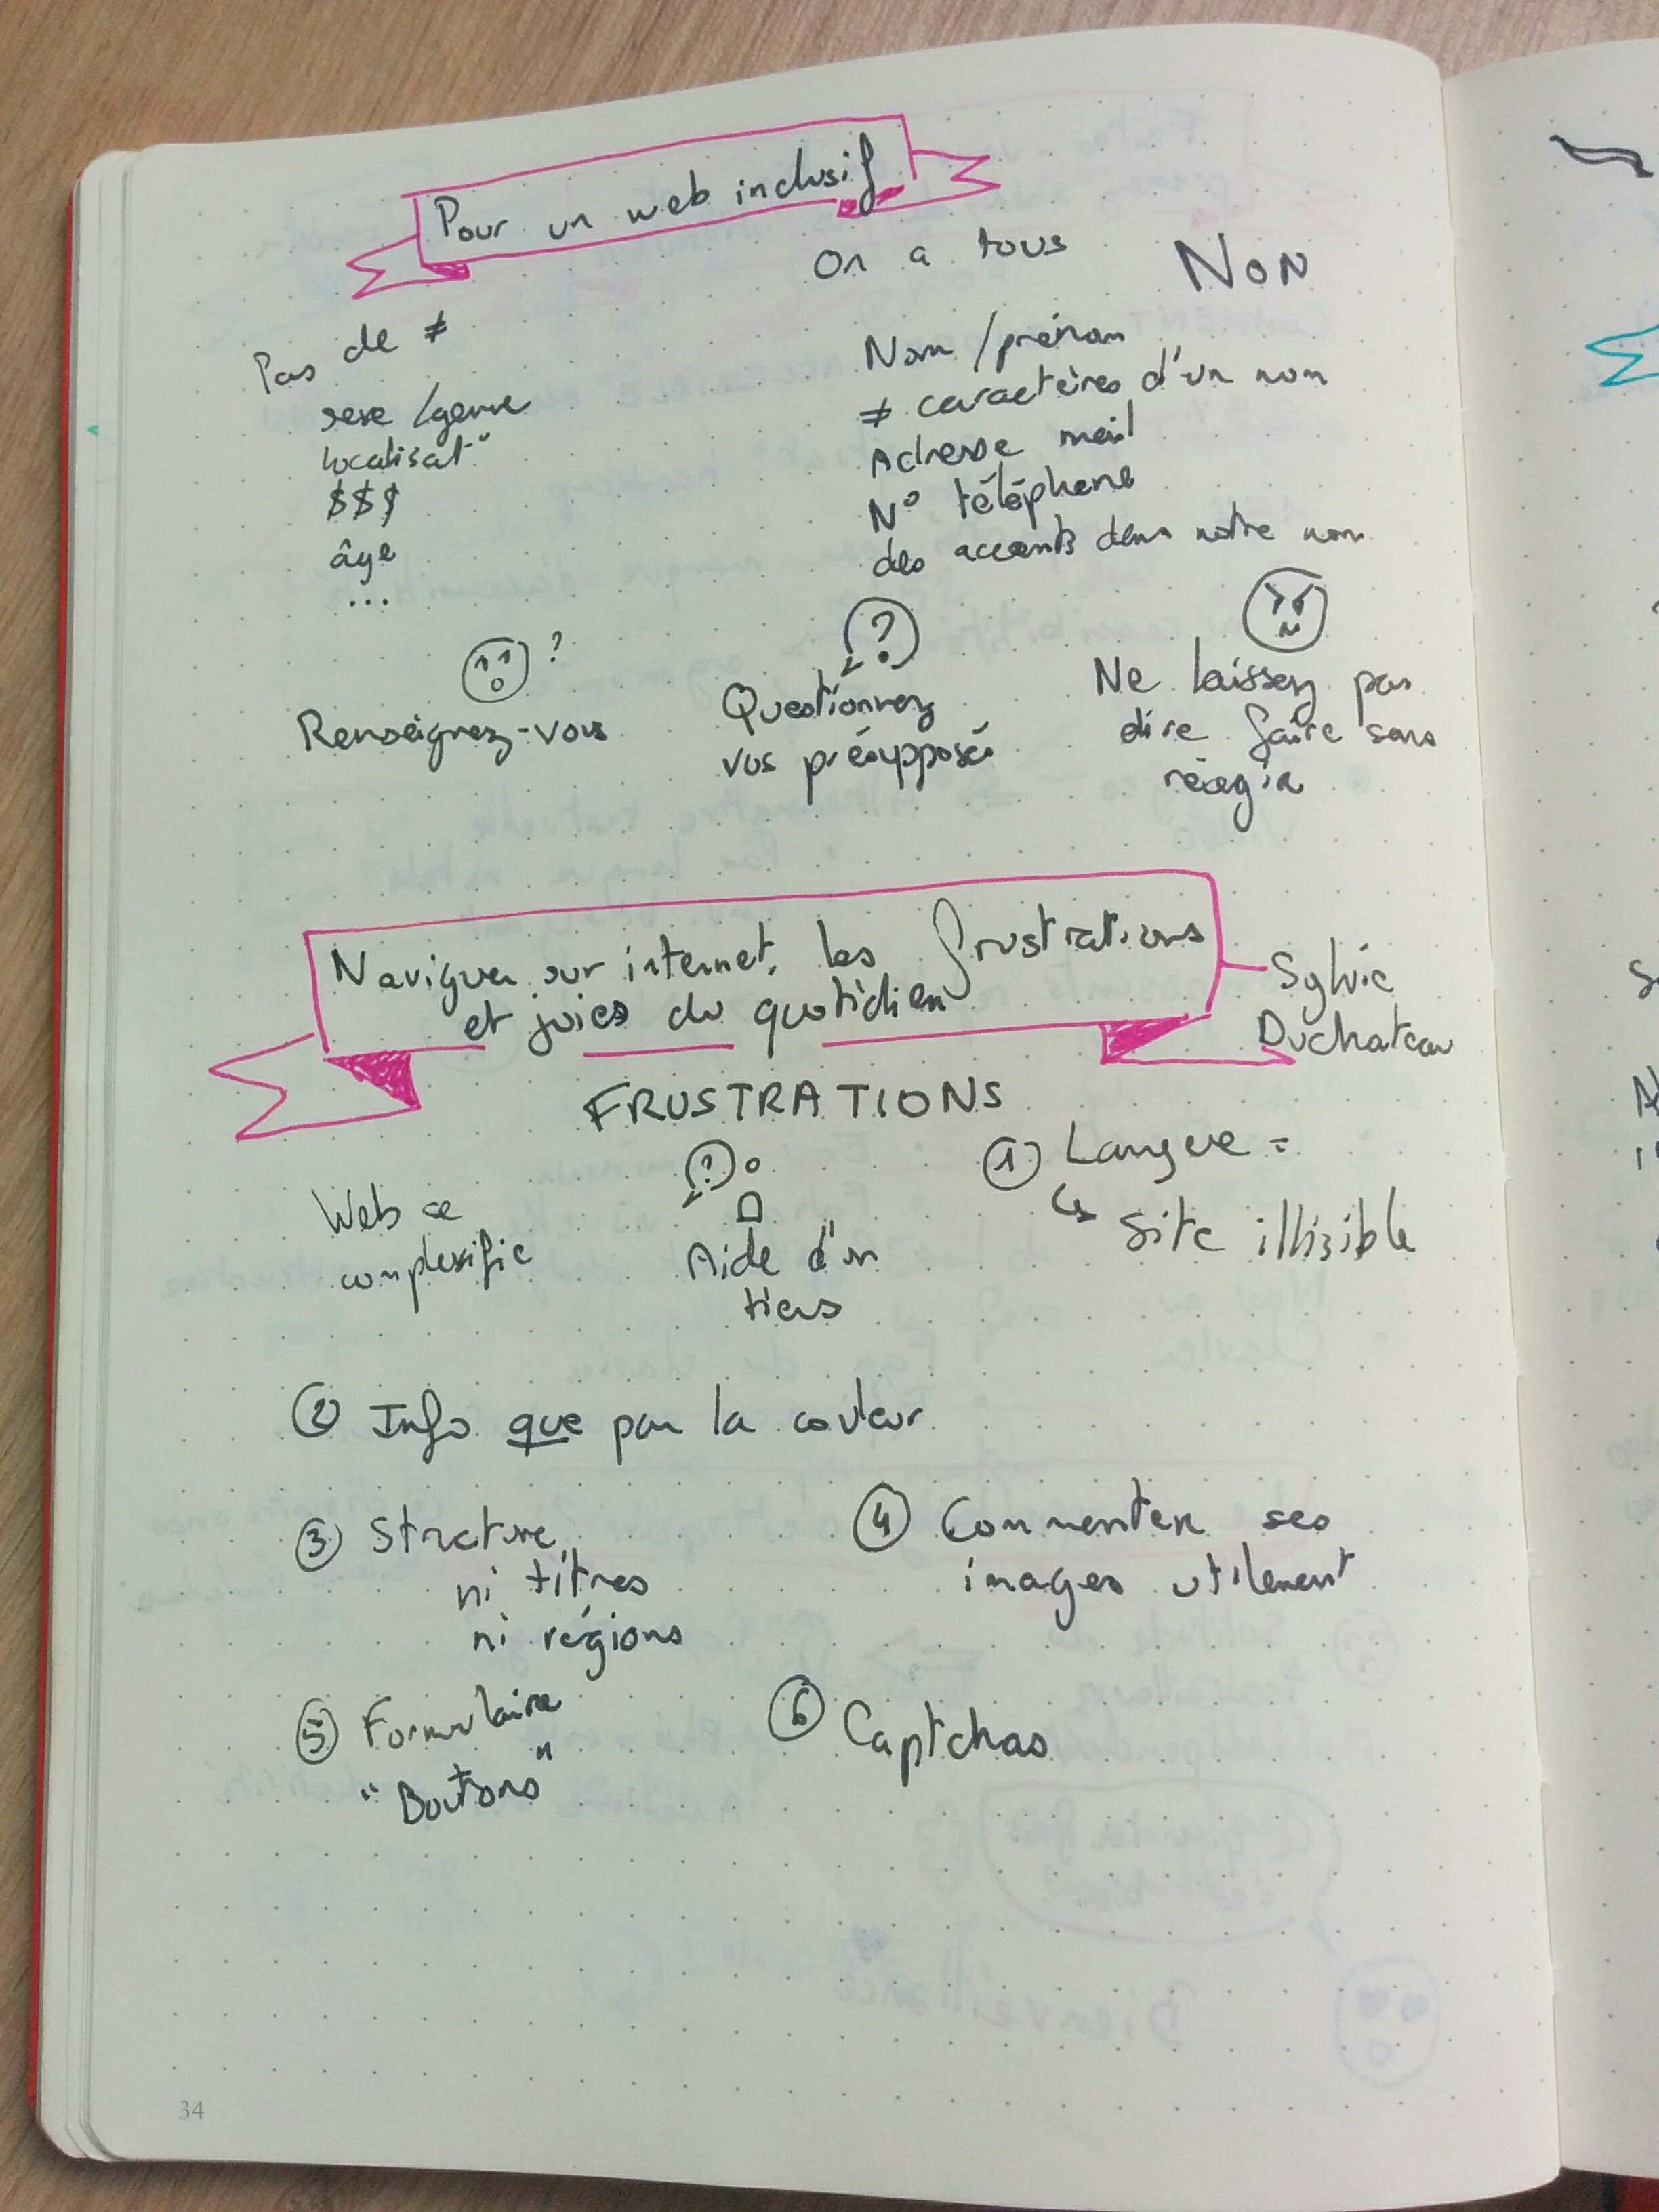 Pour un web inclusif
Pas de ≠
sexe/genre
localisat°
$$$
âge
...
On a tous
NON
Nom/prénom
≠ caractères d'un nom
Adresse mail
N° téléphone
des accents dans notre nom
?
Renseignez-vous
?
Questionnez
vos présupposés
Ne laissez pas
dire faire sans
réagir
Naviguer sur internet, les frustrations
et joies du quotidien
Sylvie
Duchateau
FRUSTRATIONS
Web se
complexifie
?
Aide d'un
tiers
① Langue =
↳ Site illisible
② Info que par la couleur
③ Structure
ni titres
ni régions
④ Commenter ses
images utilement
⑤ Formulaire
"Boutons"
⑥ Captchas
34